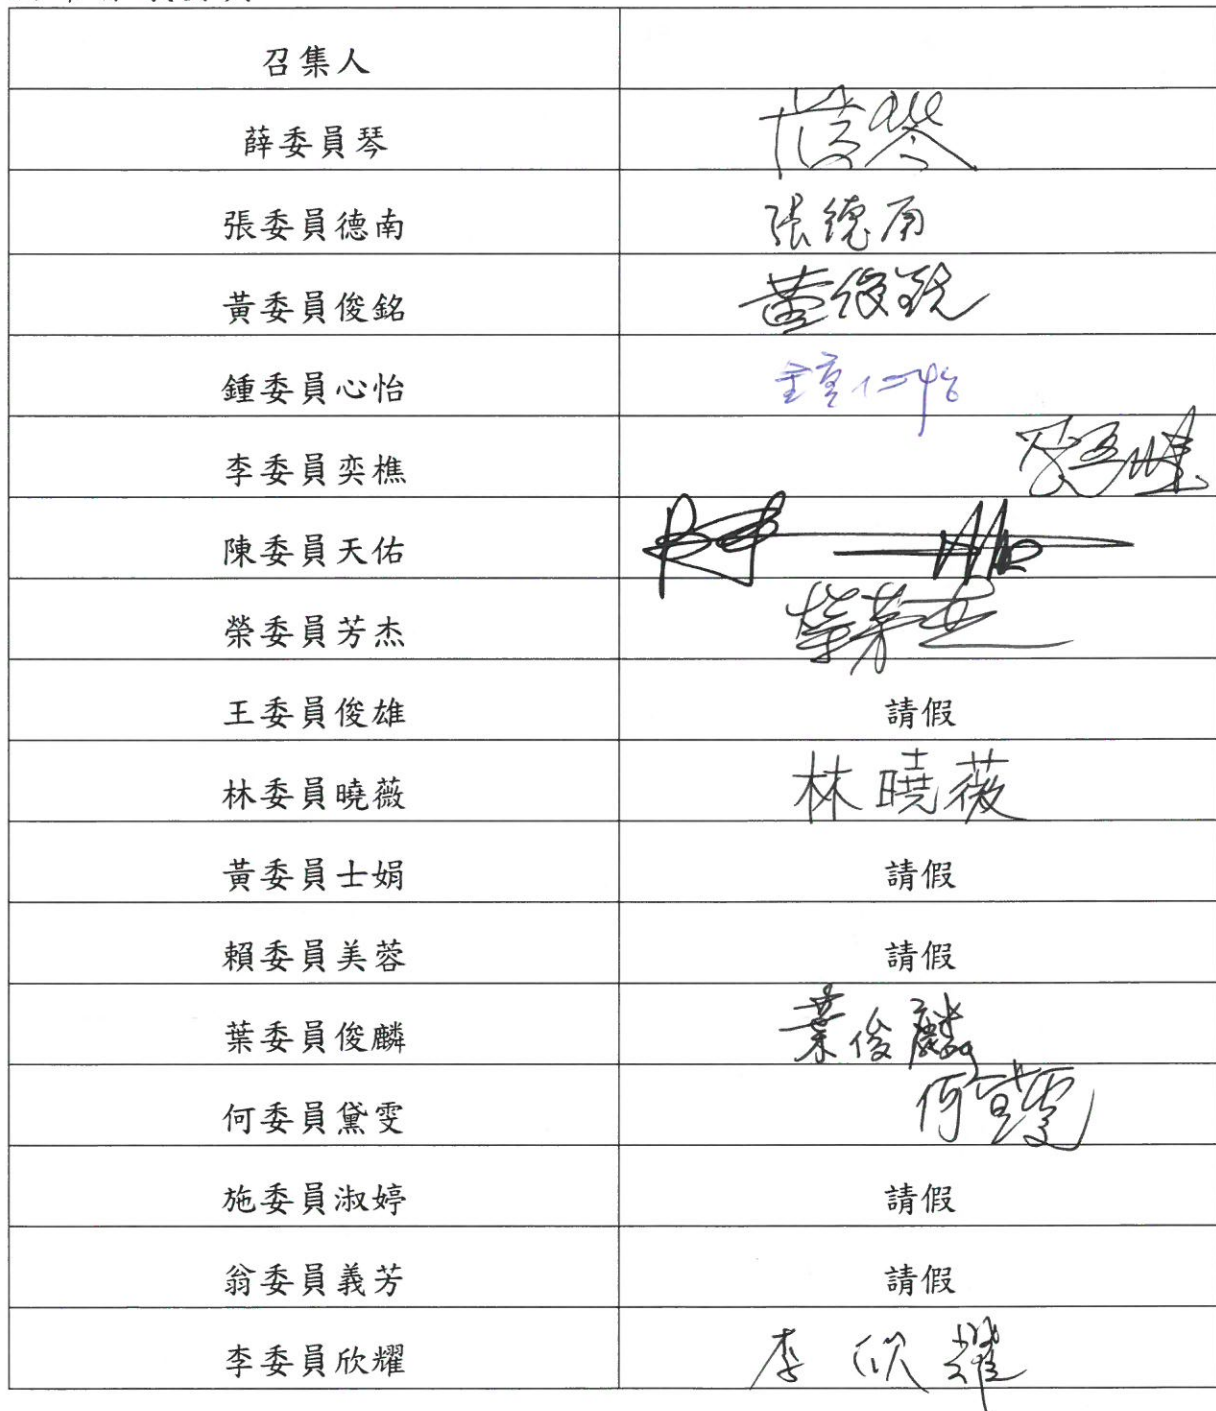 召集人
薛委員琴 薛琴
張委員德南 張德南
黃委員俊銘 黃俊銘
鍾委員心怡
李委員奕樵
陳委員天佑
榮委員芳杰 榮芳杰
王委員俊雄 請假
林委員曉薇 林曉薇
黃委員士娟 請假
賴委員美蓉 請假
葉委員俊麟 葉俊麟
何委員黛雯 何黛雯
施委員淑婷 請假
翁委員義芳 請假
李委員欣耀 李欣耀